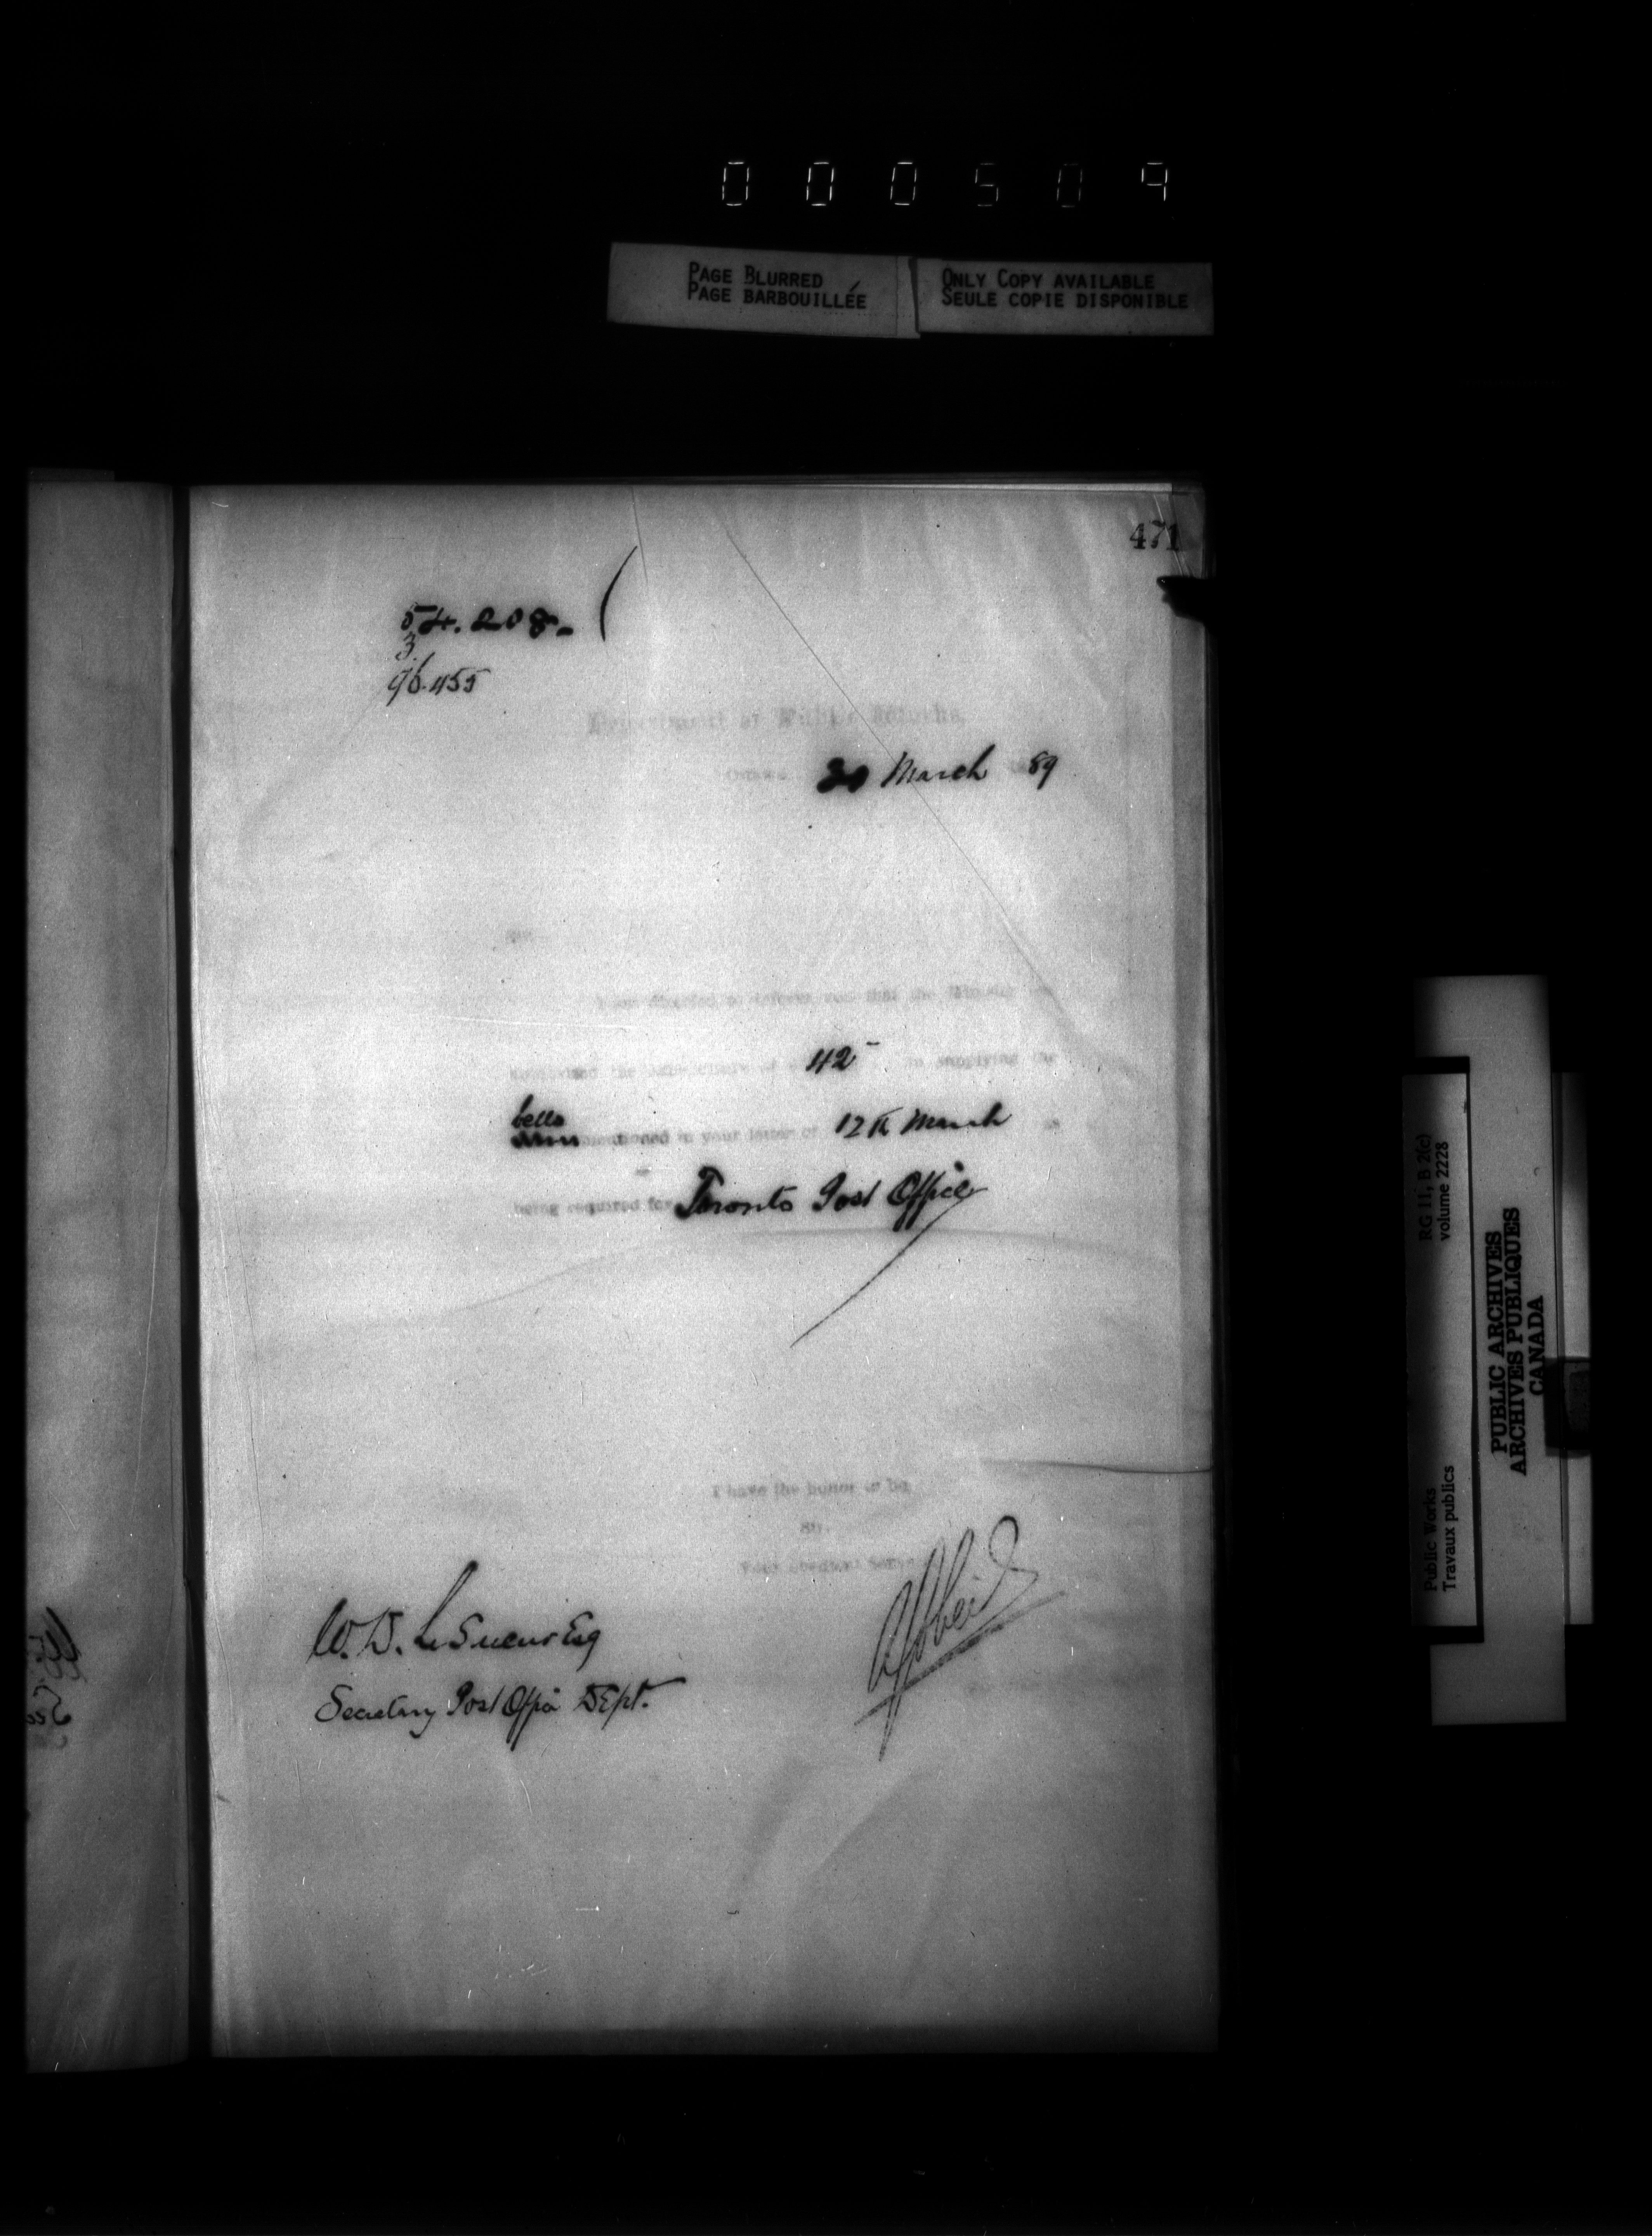 000509
PAGE BLURRED
PAGE BARBOUILLÉE
ONLY COPY AVAILABLE
SEULE COPIE DISPONIBLE
471
54.208-
3
96.455
Department of Public Works,
March 89
Sir,
I am directed to inform you that the Minister has
authorized the expenditure of 42- in supplying the
bells
mentioned in your letter of 12th March as
being required for Toronto Post Office
I have the honor to be,
Sir,
Your obedient
W. D. LeSueur Esq
Secretary Post Office Dept.
Public Works
Travaux publics
RG 11, B 2(c)
volume 2228
PUBLIC ARCHIVES
ARCHIVES PUBLIQUES
CANADA